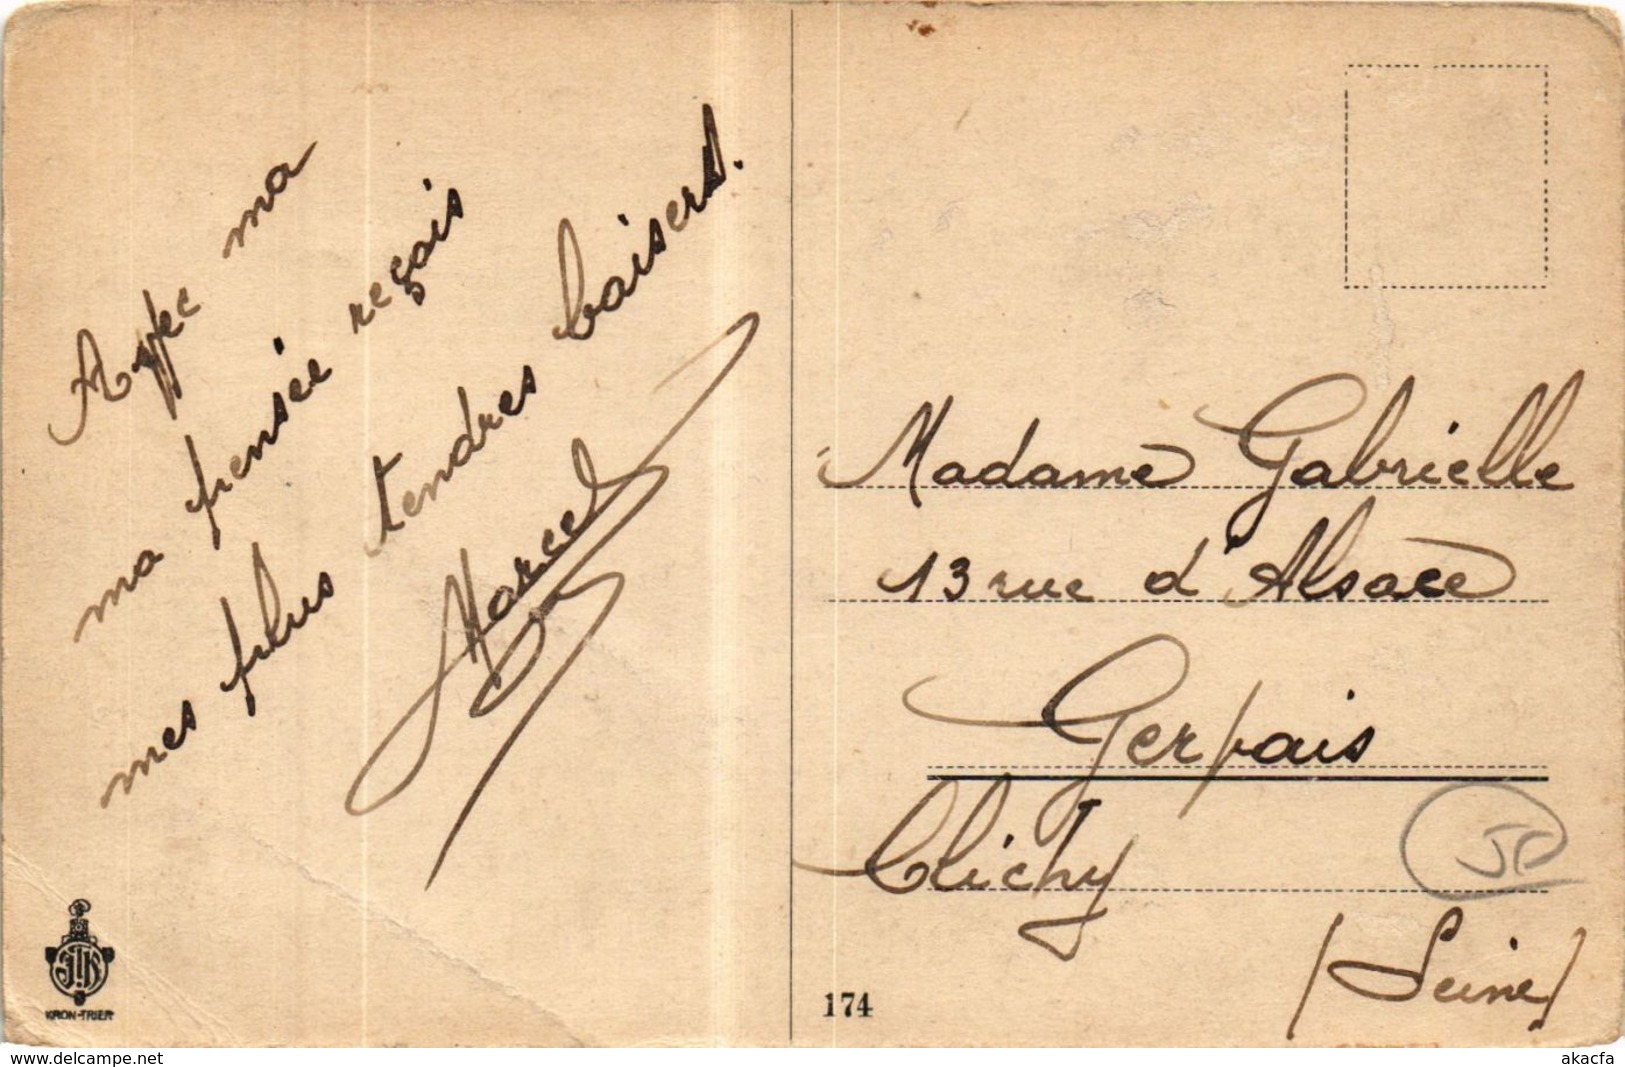 Avec ma
ma pensée reçois
mes plus tendres baisers.
Marcel
Madame Gabrielle
13 rue d'Alsace
Gervais
Clichy
(Seine)
JC
JK
KRON-TRIER
174
www.delcampe.net
akacfa